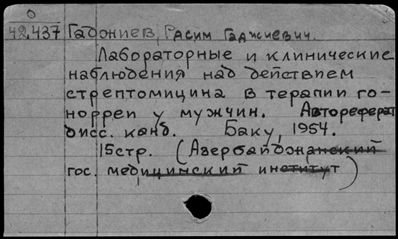 0
42.437 Гаджиев, Расим Гаджиевич.
Лабораторные и клинические
наблюдения над действием
стрептомицина в терапии го-
норреи у мужчин. Автореферат
дисс. канд. Баку, 1954.
15стр. (Азербайджанский
гос. медицинский институт)